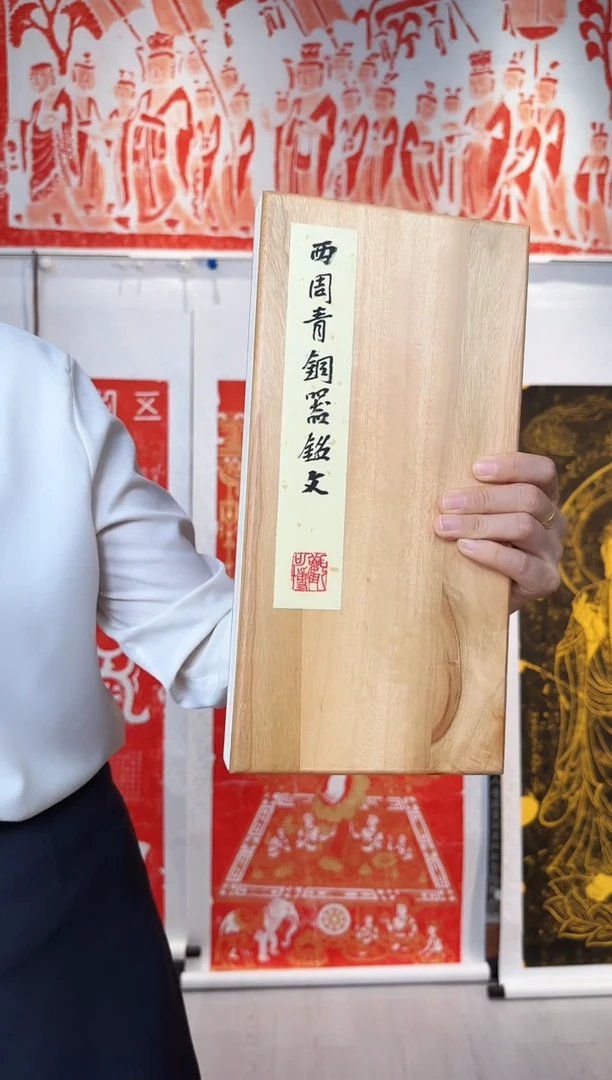 西周青銅器銘文